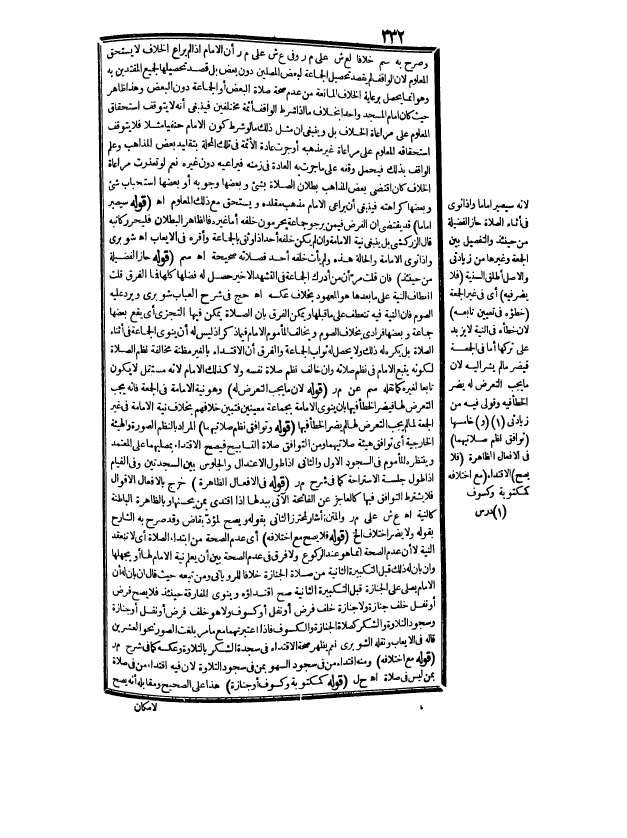 ٣٣٢
وصرح به سم خلافا لع ش على م ر وفى ع ش على م ر أن الامام اذا لم يراع الخلاف لا يستحق
المعلوم لان الواقف لم يقصد تحصيل الجماعة لبعض المصلين دون بعض بل قصد تحصيلها لجميع المقتدين به
وهو انما يحصل برعاية الخلاف المانعة من عدم صحة صلاة البعض أو الجماعة دون البعض وهذا ظاهر
حيث كان امام المسجد واحدا بخلاف ما اذا شرط الواقف أئمة مختلفين فينبغى أنه لا يتوقف استحقاق
المعلوم على مراعاة الخلاف بل وينبغى ان مثل ذلك ما لو شرط كون الامام حنفيا مثلا فلا يتوقف
استحقاقه المعلوم على مراعاة غير مذهبه أو جرت عادة الأئمة فى تلك المحلة بتقليد بعض المذاهب وعلم
الواقف بذلك فيحمل وقفه على ما جرت به العادة فى زمنه فيراعيه دون غيره نعم لو تعذرت مراعاة
الخلاف كان اقتضى بعض المذاهب بطلان الصلاة بشئ وبعضها وجوبه أو بعضها استحباب شئ
وبعضها كراهته فينبغى أن يراعى الامام مذهب مقلده ويستحق مع ذلك المعلوم اه (قوله سيصير
اماما) قد يقتضى ان الفرض فيمن يرجو جماعة يحرمون خلفه أما غيره فالظاهر البطلان فليحرر كاتبه
قال الزركشى بل ينبغى نية الامامة وان لم يكن خلفه أحد اذا وثق بالجماعة وأقره فى الايعاب اه شوبرى
واذا نوى الامامة والحالة هذه ولم يأت خلفه أحد فصلاته صحيحة اه سم (قوله حاز الفضيلة
من حينئذ) فان قلت مر أن من أدرك الجماعة فى التشهد الاخير حصل له فضلها كلها فما الفرق قلت
انعطاف النية على ما بعدها هو المعهود بخلاف عكسه اه حج فى شرح العباب شوبرى ويرد عليه
الصوم فان النية فيه تنعطف على ما قبلها ويمكن الفرق بان الصلاة يمكن فيها التجزى أى يقع بعضها
جماعة وبعضها فرادى بخلاف الصوم ويخالف المأموم الامام فيما ذكر اذ ليس له أن ينوى الجماعة فى أثناء
الصلاة بل يكره له ذلك ولا يحصل له ثواب الجماعة والفرق أن الاقتداء بالغير مظنة مخالفة نظم الصلاة
لكونه يتبع الامام فى نظم صلاته وان خالف نظم صلاة نفسه ولا كذلك الامام لانه مستقل لا يكون
تابعا لغيره كما نقله سم عن م ر (قوله لان ما يجب التعرض له) وهو نية الامامة فى الجمعة فانه يجب
التعرض لها فيضر الخطأ فيها بان ينوى الامامة بجماعة معينين فتبين خلافهم بخلاف نية الامامة فى غير
الجمعة لما لم يجب التعرض لها لم يضر الخطأ فيها (قوله وتوافق نظم صلاتيهما) المراد بالنظم الصورة والهيئة
الخارجية أى توافق هيئة صلاتيهما ومن التوافق صلاة التسابيح فيصح الاقتداء بمصليها على المعتمد
وينتظره المأموم فى السجود الاول والثانى اذا طول الاعتدال والجلوس بين السجدتين وفى القيام
اذا طول جلسة الاستراحة كما فى شرح م ر (قوله فى الافعال الظاهرة) خرج بالافعال الاقوال
فلا يشترط التوافق فيها كالعاجز عن الفاتحة الآتى ببدلها اذا اقتدى بمن يحسنها وبالظاهرة الباطنة
كالنية اه ع ش على م ر والمتن أشار لمحترز الثانى بقوله ويصح لمؤد بقاض وقد صرح به الشارح
بقوله ولا يضر اختلاف الخ (قوله فلا يصح مع اختلافه) أى عدم الصحة من ابتداء الصلاة أى لا تنعقد
النية لا أن عدم الصحة انما هو عند الركوع ولا فرق فى عدم الصحة بين أن يعلم نية الامام لها أو يجهلها
وان بان له ذلك قبل التكبيرة الثانية من صلاة الجنازة خلافا للرويانى ومن تبعه حيث قال ان بان له أن
الامام يصلى على الجنازة قبل التكبيرة الثانية صح اقتداؤه وينوى المفارقة حينئذ فلا يصح فرض
أو نفل خلف جنازة ولا جنازة خلف فرض أو نفل أو كسوف ولا هو خلف فرض أو نفل أو جنازة
وسجود التلاوة والشكر كصلاة الجنازة والكسوف فاذا اعتبرتهما مع ما مر بلغت الصور نحو العشرين
قاله فى الايعاب ونقله الشوبرى نعم يظهر صحة الاقتداء فى سجدة الشكر بالتلاوة وعكسه كما فى شرح م ر
(قوله مع اختلافه) ومنه اقتداء من فى سجود السهو بمن فى سجود التلاوة لان فيه اقتداء من فى صلاة
بمن ليس فى صلاة اه ح ل (قوله كمكتوبة وكسوف أو جنازة) هذا على الصحيح ومقابله أنه يصح
لامكان
لانه سيصير اماما واذا نوى
فى أثناء الصلاة حاز الفضيلة
من حينئذ والتفصيل بين
الجمعة وغيرها من زيادتى
والاصل أطلق السنية (فلا
يضر فيه) أى فى غير الجمعة
(خطؤه فى تعيين تابعه)
لان خطأه فى النية لا يزيد
على تركها أما فى الجمعة
فيضر ما لم يشر اليه لان
ما يجب التعرض له يضر
الخطأ فيه وقولى فيه من
زيادتى (١) (و) خامسها
(توافق نظم صلاتيهما)
فى الافعال الظاهرة (فلا
يصح) الاقتداء (مع اختلافه
كمكتوبة وكسوف
(١) درس